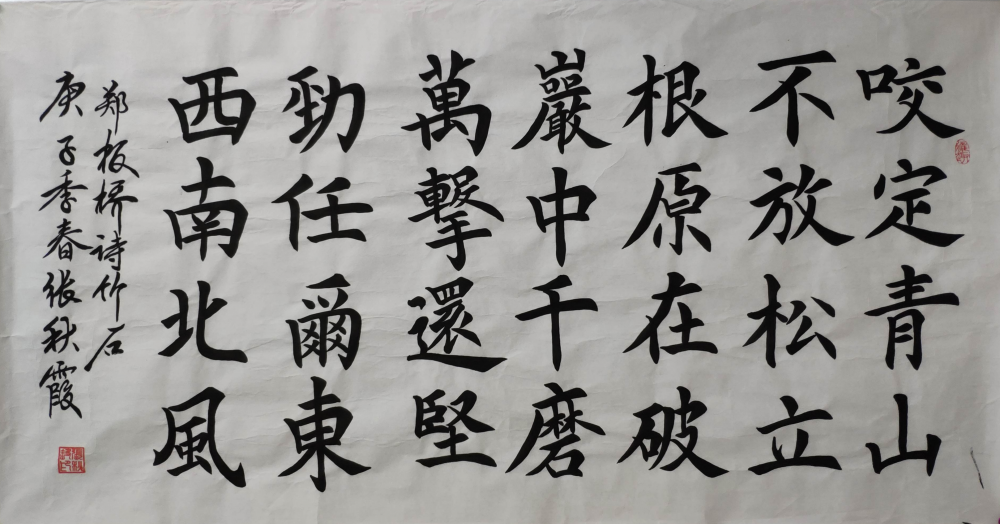 咬定青山
不放松立
根原在破
巖中千磨
萬擊還堅
勁任爾東
西南北風
郑板桥诗竹石
庚子季春张秋霞